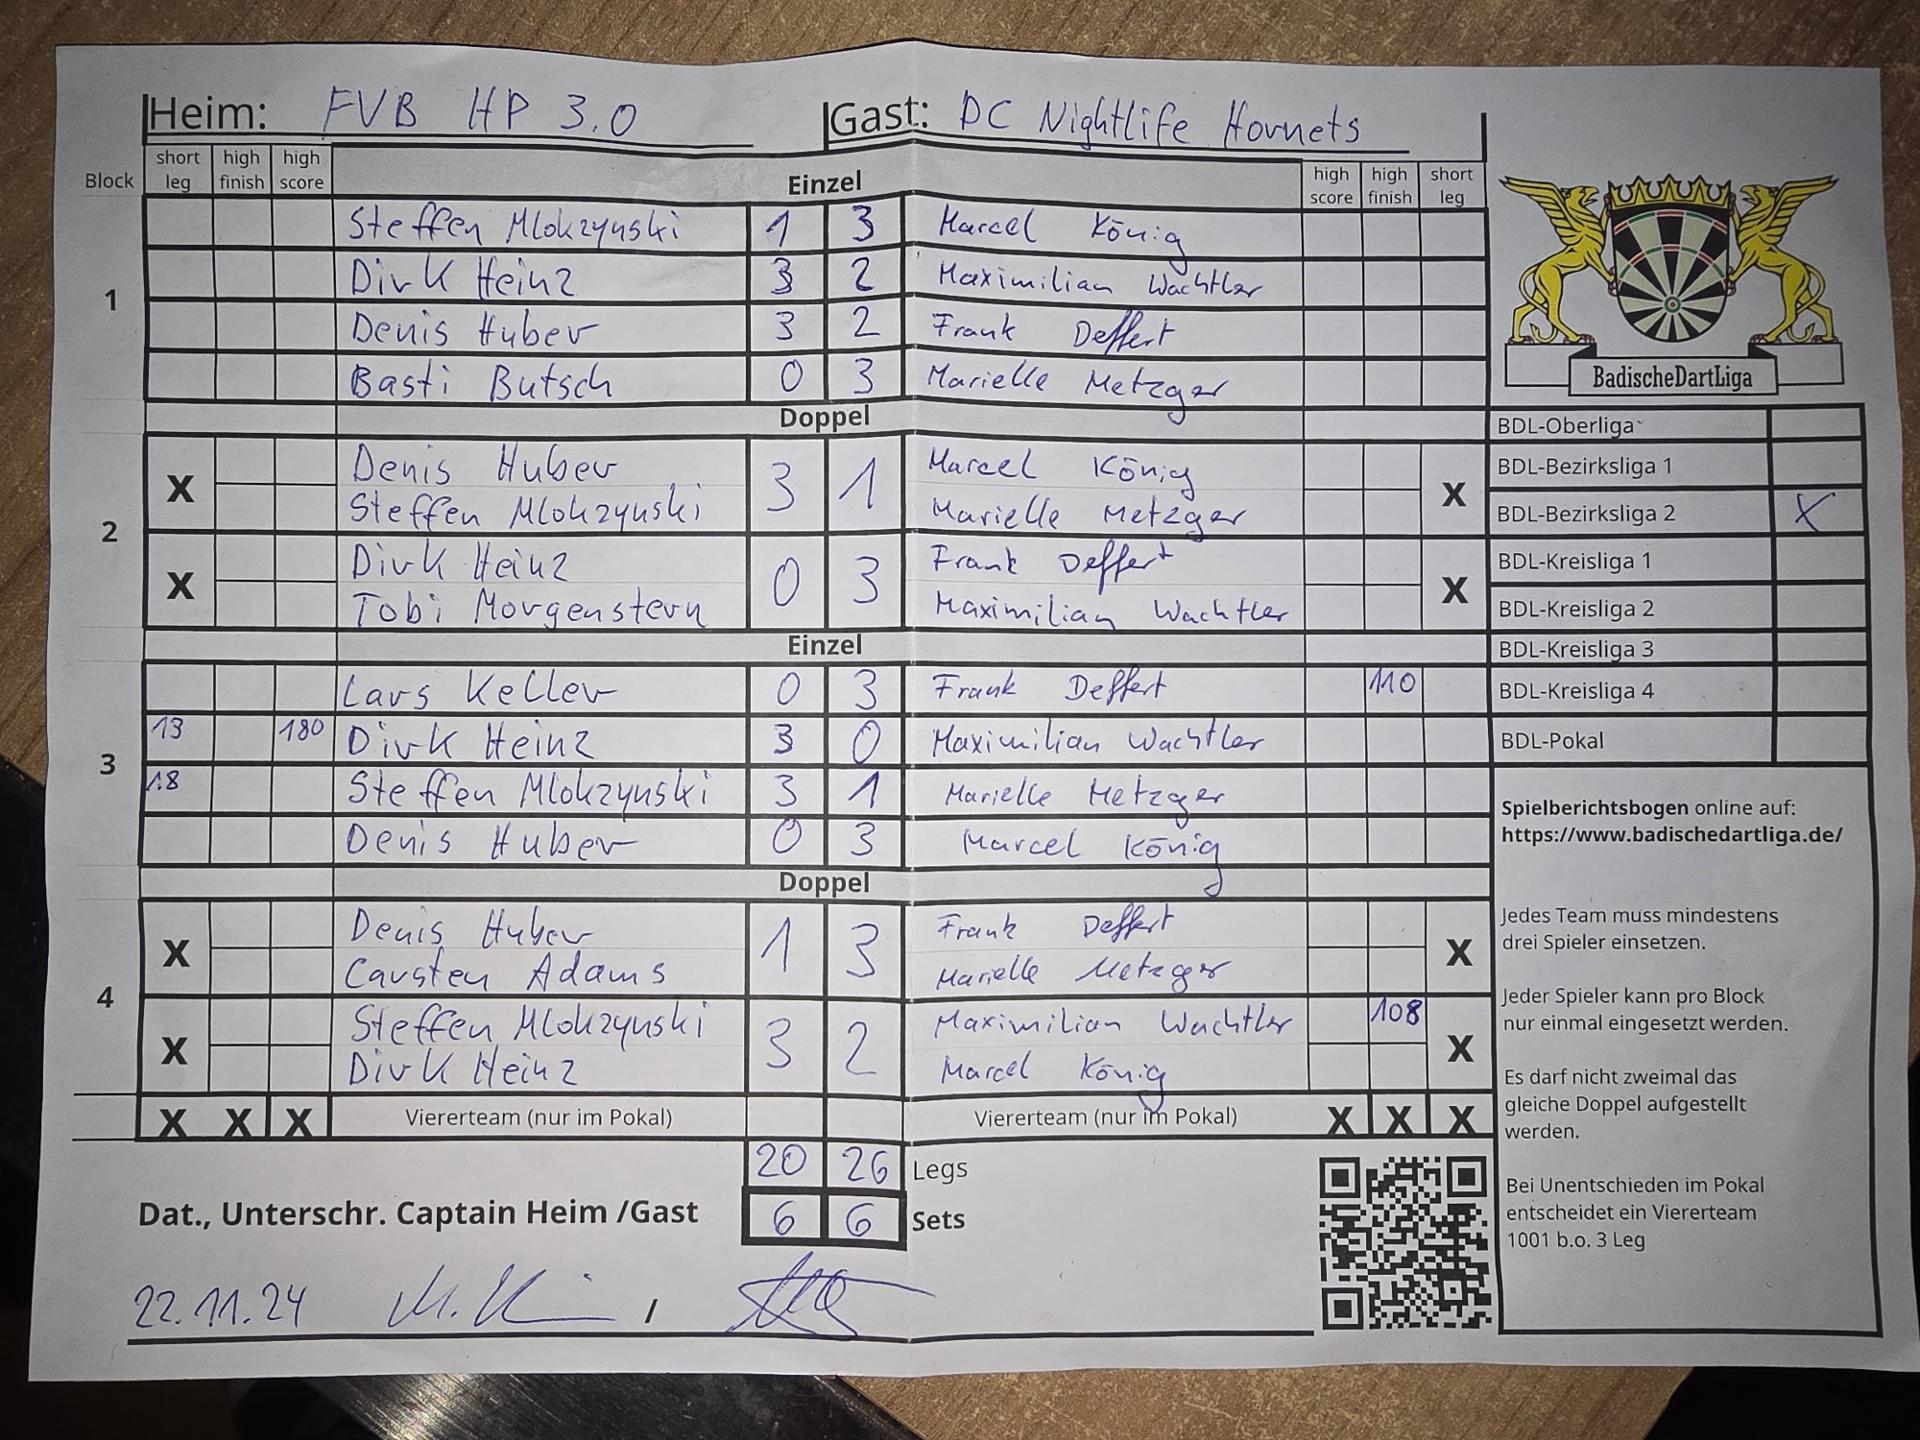 Heim: FVB HP 3.0 Gast: DC Nightlife Hornets
Block short leg high finish high score Einzel high score high finish short leg
1
Steffen Mlokzynski 1 3 Marcel König
Dirk Heinz 3 2 Maximilian Wachtler
Denis Huber 3 2 Frank Deffert
Basti Butsch 0 3 Marielle Metzger
Doppel
2
X Denis Huber 3 1 Marcel König X
Steffen Mlokzynski Marielle Metzger
X Dirk Heinz 0 3 Frank Deffert X
Tobi Morgenstern Maximilian Wachtler
Einzel
3
Lars Keller 0 3 Frank Deffert 110
13 180 Dirk Heinz 3 0 Maximilian Wachtler
18 Steffen Mlokzynski 3 1 Marielle Metzger
Denis Huber 0 3 Marcel König
Doppel
4
X Denis Huber 1 3 Frank Deffert X
Carsten Adams Marielle Metzger
X Steffen Mlokzynski 3 2 Maximilian Wachtler 108 X
Dirk Heinz Marcel König
X X X Viererteam (nur im Pokal) Viererteam (nur im Pokal) X X X
20 26 Legs
Dat., Unterschr. Captain Heim /Gast 6 6 Sets
22.11.24 /
BadischeDartLiga
BDL-Oberliga
BDL-Bezirksliga 1
BDL-Bezirksliga 2 X
BDL-Kreisliga 1
BDL-Kreisliga 2
BDL-Kreisliga 3
BDL-Kreisliga 4
BDL-Pokal
Spielberichtsbogen online auf:
https://www.badischedartliga.de/
Jedes Team muss mindestens
drei Spieler einsetzen.
Jeder Spieler kann pro Block
nur einmal eingesetzt werden.
Es darf nicht zweimal das
gleiche Doppel aufgestellt
werden.
Bei Unentschieden im Pokal
entscheidet ein Viererteam
1001 b.o. 3 Leg